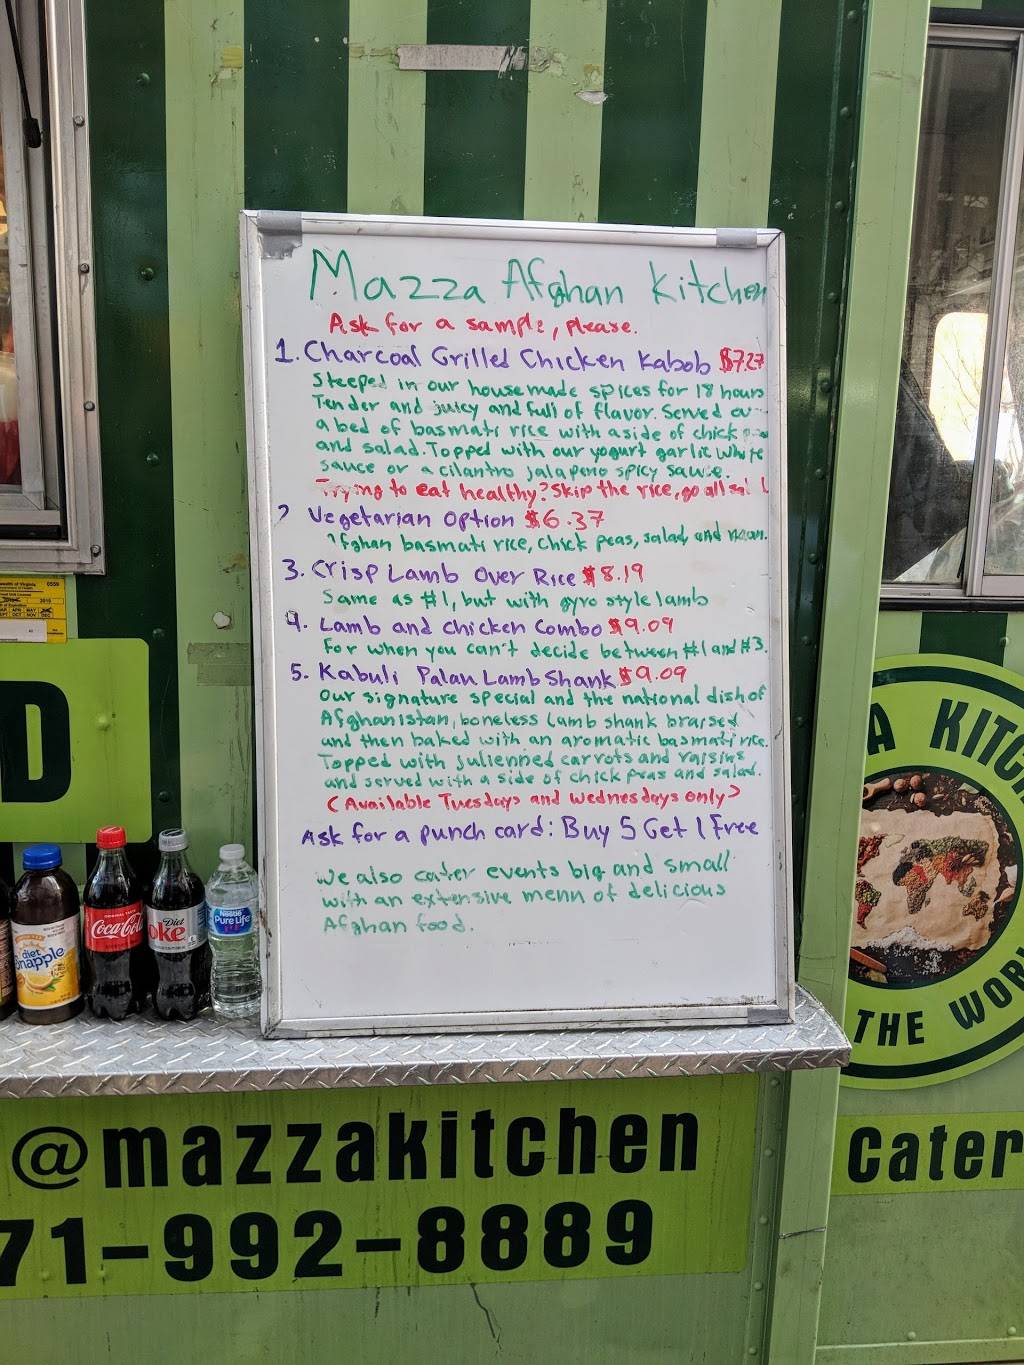 Mazza Afghan Kitchen
Ask for a sample, please.
1. Charcoal Grilled Chicken Kabob $7.27
Steeped in our housemade spices for 18 hours
Tender and juicy and full of flavor. Served
a bed of basmati rice with a side of chick
and salad. Topped with our yogurt garlic white
sauce or a cilantro jalapeno spicy sauce.
Trying to eat healthy? Skip the rice, go all
2 Vegetarian Option $6.37
Afghan basmati rice, chick peas, salad and naan.
3. Crisp Lamb Over Rice $8.19
Same as #1, but with gyro style lamb
4. Lamb and Chicken Combo $9.09
For when you can't decide between #1 and #3.
5. Kabuli Palau Lamb Shank $9.09
our signature special and the national dish of
Afghanistan, boneless lamb shank braised
and then baked with an aromatic basmati rice.
Topped with julienned carrots and raisins
and served with a side of chick peas and salad.
(Available Tuesdays and Wednesdays only)
Ask for a punch card: Buy 5 Get 1 Free
We also cater events big and small
with an extensive menu of delicious
Afghan food.
D
diet
Snapple
Coca-Cola
Diet
Coke
Nestle
Pure Life
A KITCH
THE WOR
@mazzakitchen
71-992-8889
Cater